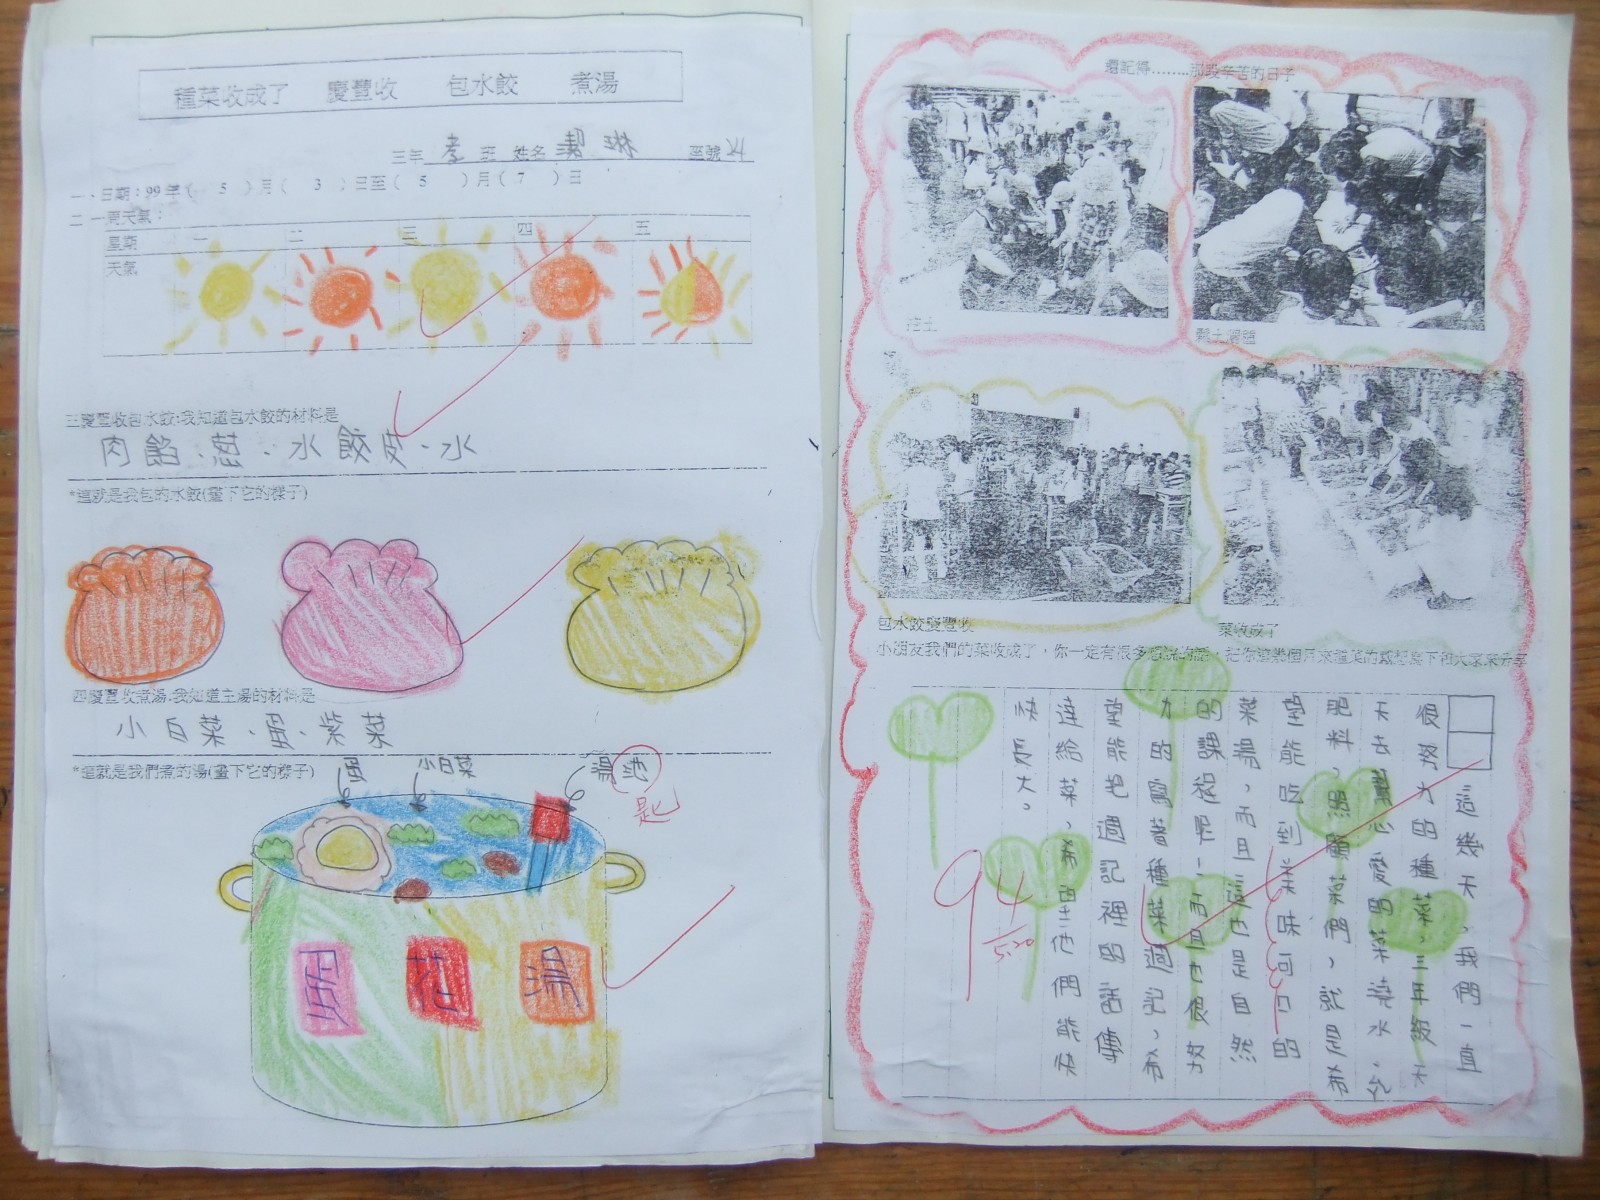 種菜收成了 慶豐收 包水餃 煮湯
三年孝班 姓名 潔琳 座號
一、日期:99年( 5 )月( 3 )日至( 5 )月( 7 )日
二 一周天氣:
星期 一 二 三 四 五
天氣
三慶豐收包水餃:我知道包水餃的材料是
肉餡、蔥、水餃皮、水
*這就是我包的水餃(畫下它的樣子)
四慶豐收煮湯:我知道主湯的材料是
小白菜、蛋、紫菜
*這就是我們煮的湯(畫下它的樣子)
蛋
小白菜
湯
匙
蛋 花 湯
還記得........那段辛苦的日子
鬆土
包水餃慶豐收
菜收成了
小朋友我們的菜收成了，你一定有很多想說的話，把你這幾個月來種菜的感想寫下和大家來分享
這幾天，我們一直
很努力的種菜，三年級天
天去幫心愛的菜澆水、
肥料，照顧菜們，就是希
望能吃到美味可口的
菜湯，而且這也是自然
的課程呢！而且也很努
力的寫著種菜週記，希
望能把週記裡的話傳
達給菜，希望他們能快
快長大。
94
5.20